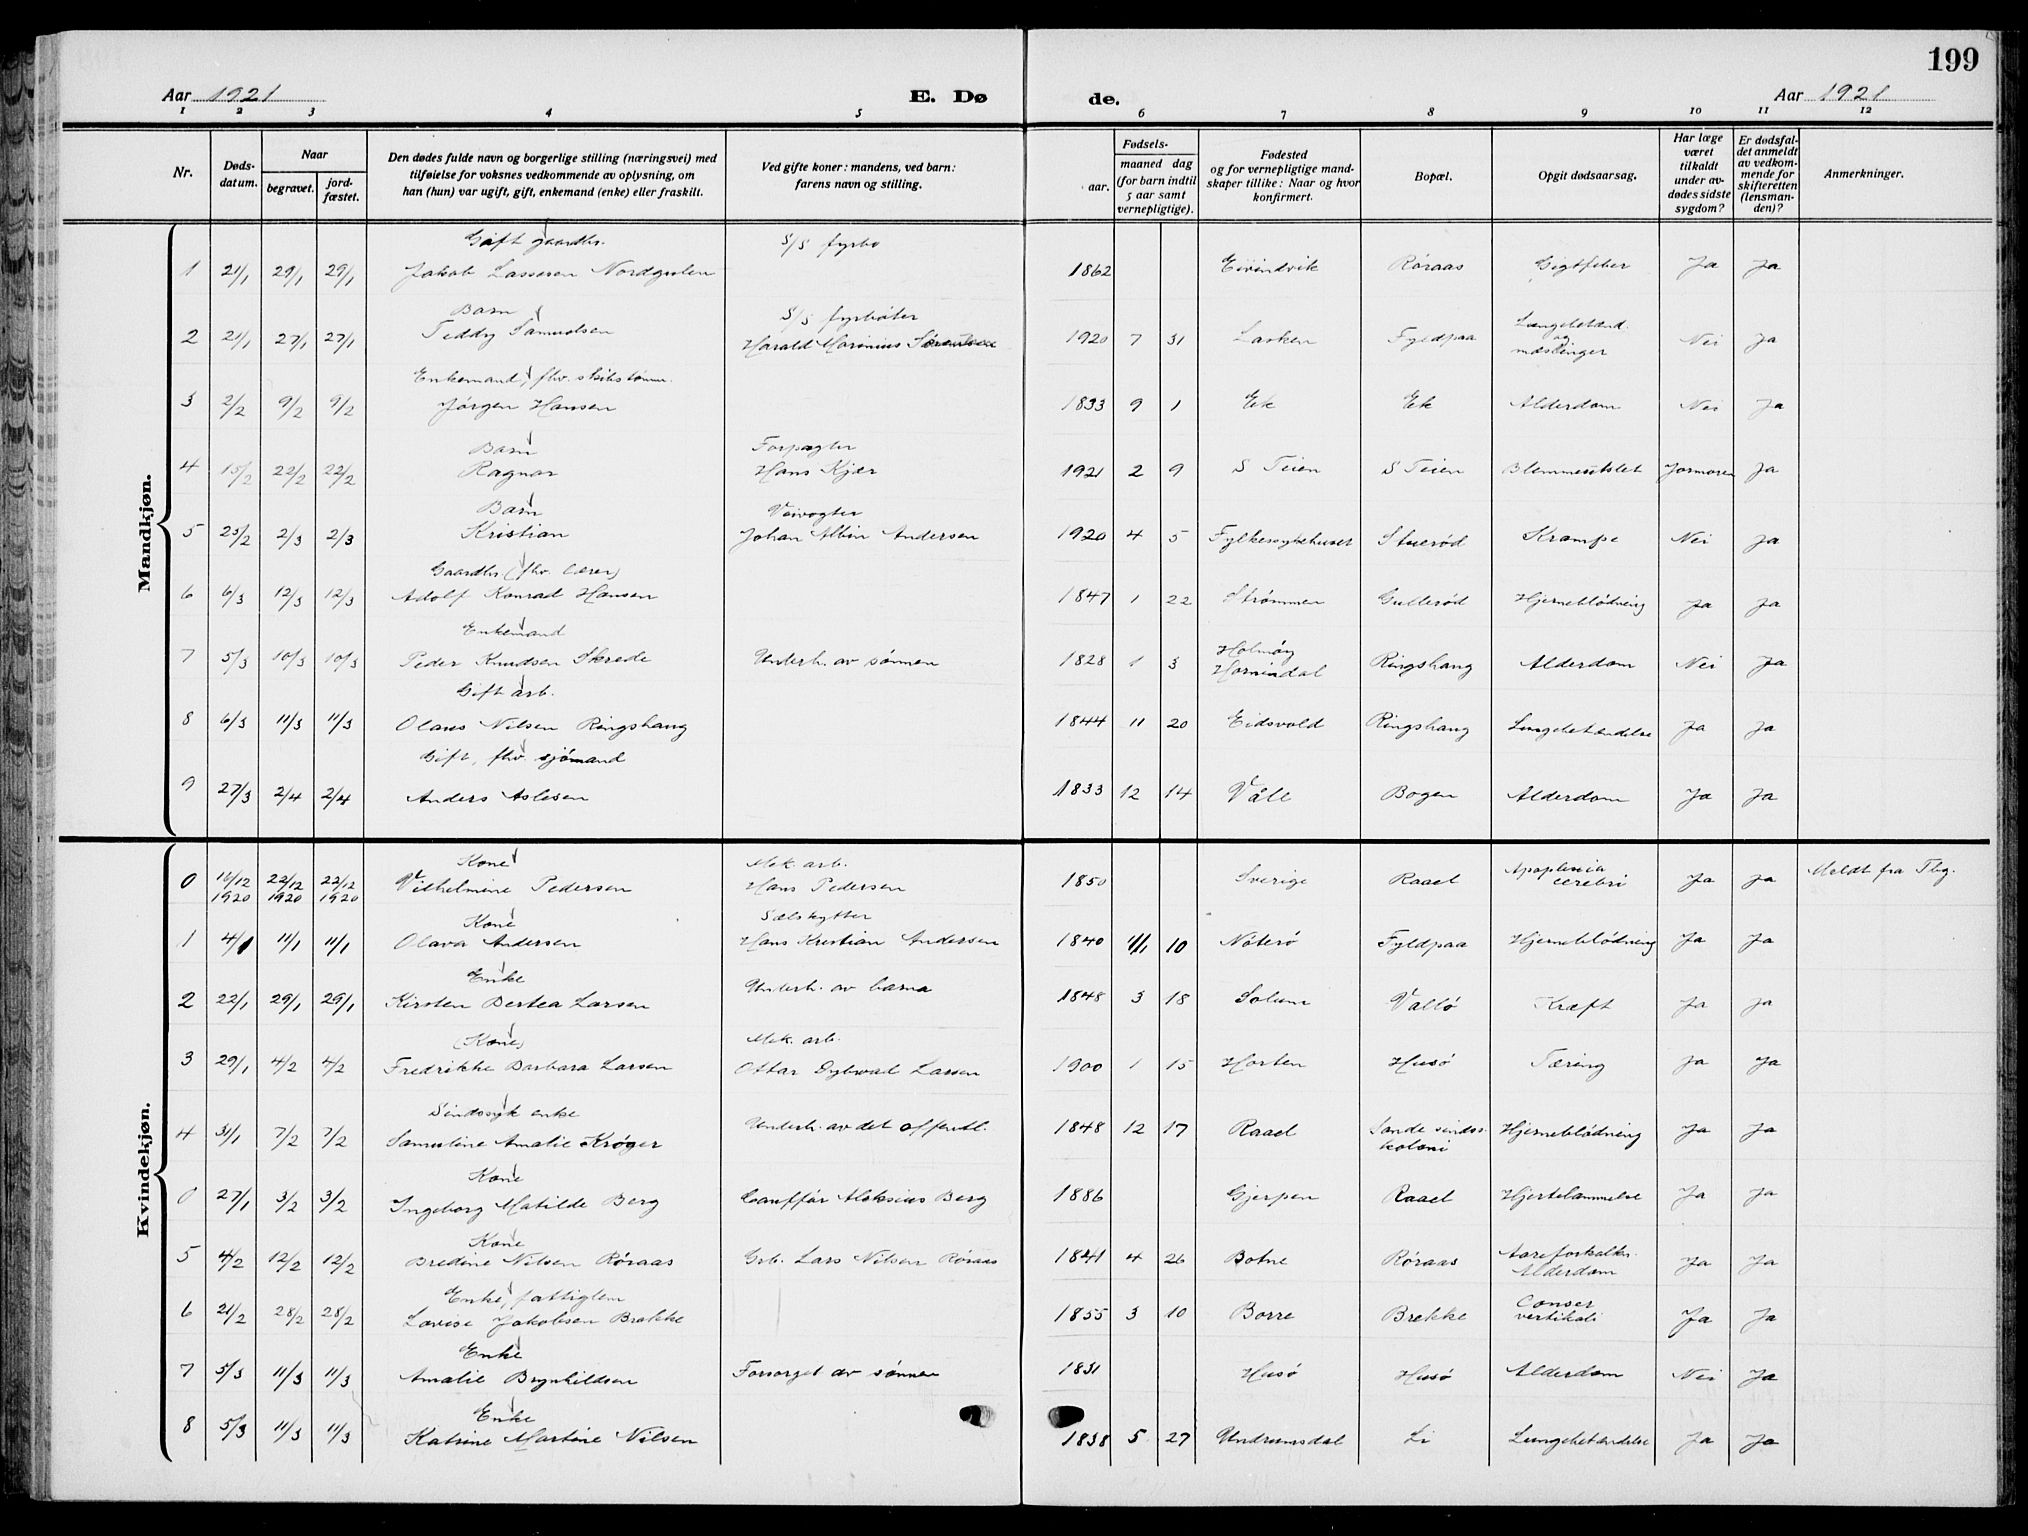 199
Aar 1921
E. Dø
de.
Aar 1921
1 2 3 4 5 6 7 8 9 10 11 12
Nr.
Døds-
datum.
Naar
begravet.
jord-
fæstet.
Den dødes fulde navn og borgerlige stilling (næringsvei) med
tilføielse for voksnes vedkommende av oplysning, om
han (hun) var ugift, gift, enkemand (enke) eller fraskilt.
Ved gifte koner: mandens, ved barn:
farens navn og stilling.
Fødsels-
aar.
maaned dag
(for barn indtil
5 aar samt
vernepligtige).
Fødested
og for vernepligtige mand-
skaper tillike: Naar og hvor
konfirmert.
Bopæl.
Opgit dødsaarsag.
Har læge
været
tilkaldt
under av-
dødes sidste
sygdom?
Er dødsfal-
det anmeldt
av vedkom-
mende for
skifteretten
(lensman-
den)?
Anmerkninger.
Mandkjøn.
Gift gaardbr. S/S fyrbø
1 21/1 29/1 29/1 Jakob Lassesen Nordgulen 1862 Eivindvik Røraas Gigtfeber Ja Ja
Barn S/S fyrbøter
2 21/1 27/1 27/1 Teddy Samuelsen Harald Marinius 1920 7 31 Fyldpaa Lungebetænd. og mæslinger Nei Ja
Enkemand, fhv. skibstømm.
3 2/2 9/2 9/2 Jørgen Hansen 1833 9 1 Ek Ek Alderdom Nei Ja
Barn Forpagter
4 15/2 22/2 22/2 Ragnar Hans Kjær 1921 2 9 S Teien S Teien Jormoren Ja
Barn Veivogter
5 23/2 2/3 2/3 Kristian Johan Albin Andersen 1920 4 5 Fylkessykehuset Stuerød Krampe Nei Ja
Gaardbr. (fhv. lærer)
6 6/3 12/3 12/3 Adolf Konrad Hansen 1847 1 22 Strømmen Gullerød Hjerneblødning Ja Ja
Enkemand
7 5/3 10/3 10/3 Peder Knudsen Skrede Underh. av sønnen 1828 1 3 Holmøy Hornindal Ringshaug Alderdom Nei Ja
Gift arb.
8 6/3 11/3 11/3 Olaus Nilsen Ringshaug 1844 11 20 Eidsvold Ringshaug Lungebetændelse Ja Ja
Gift, fhv. sjømand
9 27/3 2/4 2/4 Anders Aslesen 1833 12 14 Våle Bogen Alderdom Ja Ja
Kvindekjøn.
Kone Mek. arb.
0 16/12 1920 22/12 1920 22/12 1920 Vilhelmine Pedersen Hans Pedersen 1850 Sverige Raael Apoplexia cerebri Ja Ja Meldt fra Tbg.
Kone Sælskytter
1 4/1 11/1 11/1 Olava Andersen Hans Kristian Andersen 1840 10 Nøterø Fyldpaa Hjerneblødning Ja Ja
Enke
2 22/1 29/1 29/1 Kirsten Bertea Larsen Underh. av barna 1848 3 18 Solum Vallø Kræft Ja Ja
(Kone) Mek. arb.
3 29/1 4/2 4/2 Fredrikke Barbara Larsen Ottar Dybwad Larsen 1900 1 15 Horten Husø Tæring Ja Ja
Sindssyk enke
4 31/1 7/2 7/2 Samuline Amalie Krøger Underh. av det offentl. 1848 12 17 Raael Sande sindss. koloni Hjerneblødning Ja Ja
Kone
0 27/1 3/2 3/2 Ingeborg Matilde Berg Chauffør Aleksius Berg 1886 Gjerpen Raael Hjertelammelse Ja Ja
Kone
5 4/2 12/2 12/2 Bredine Nilsen Røraas Grb. Lars Nilsen Røraas 1841 4 26 Botne Røraas Aareforkalkn. Alderdom Ja Ja
Enke, fattiglem
6 21/2 28/2 28/2 Lovise Jakobsen Brekke 1855 3 10 Borre Brekke Cancer Ja Ja
Enke
7 5/3 11/3 11/3 Amalie Brynhildsen Forsørget av sønnen 1831 Husø Husø Alderdom Nei Ja
Enke
8 5/3 11/3 11/3 Katrine Martine Nilsen 1838 5 27 Undrumsdal Li Lungebetændelse Ja Ja